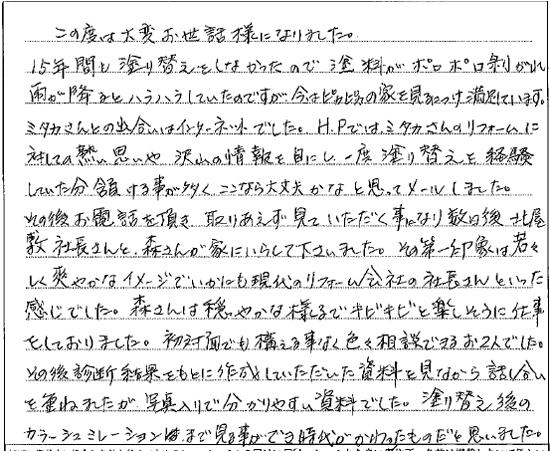 この度は大変お世話様になりました。
15年間も塗り替えをしなかったので塗料がポロポロ剝がれ
雨が降るとハラハラしていたのですが今はピカピカの家を見るにつけ満足しています。
ミタカさんとの出会いはインターネットでした。H.Pではミタカさんのリフォームに
対しての熱い思いや沢山の情報を目にし一度塗り替えを経験
していた分頷ける事が多くここなら大丈夫かなと思ってメールしました。
その後お電話を頂き取りあえず見ていただく事になり数日後北屋
敷社長さんと、森さんが家にいらして下さいました。その第一印象は若々
しく爽やかなイメージでいかにも現代のリフォーム会社の社長さんといった
感じでした。森さんは穏やかな様子でキビキビと楽しそうに仕事
をしておりました。初対面でも構える事なく色々相談できるお2人でした。
その後診断結果をもとに作成していただいた資料を見ながら話し合い
を重ねましたが、写真入りで分かりやすい資料でした。塗り替え後の
カラーシュミレーションまで見る事ができ時代がかわったものだと思いました。